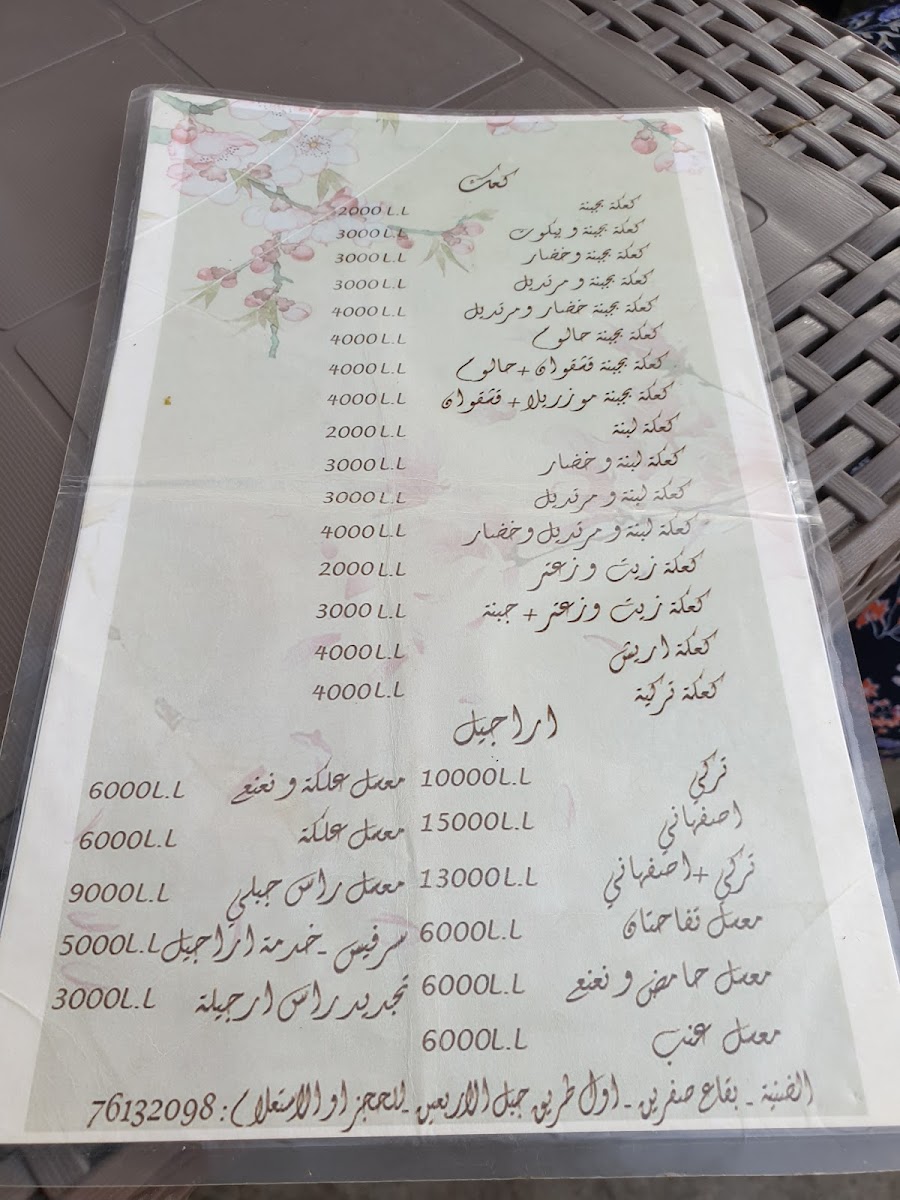 كعك
كعكة بجبنة 2000 L.L
كعكة بجبنة و بيكون 3000 L.L
كعكة بجبنة وخضار 3000 L.L
كعكة بجبنة و مرتديل 3000 L.L
كعكة بجبنة خضار ومرتديل 4000 L.L
كعكة بجبنة حالوم 4000 L.L
كعكة بجبنة قشقوان + حالوم 4000 L.L
كعكة بجبنة موزريلا + قشقوان 4000 L.L
كعكة لبنة 2000 L.L
كعكة لبنة و خضار 3000 L.L
كعكة لبنة و مرتديل 3000 L.L
كعكة لبنة و مرتديل وخضار 4000 L.L
كعكة زيت و زعتر 2000 L.L
كعكة زيت وزعتر + جبنة 3000 L.L
كعكة اريش 4000 L.L
كعكة تركية 4000 L.L
اراجيل
تركي 10000L.L معسل علكة و نعنع 6000L.L
اصفهاني 15000L.L معسل علكة 6000L.L
تركي + اصفهاني 13000L.L معسل راس جبلي 9000L.L
معسل تفاحتان 6000L.L سرفيس - خدمة اراجيل 5000L.L
معسل حامض و نعنع 6000L.L تجديد راس ارجيلة 3000L.L
معسل عنب 6000L.L
الضنية - بقاع صفرين - اول طريق جبل الاربعين - للحجز او الاستعلام : 76132098